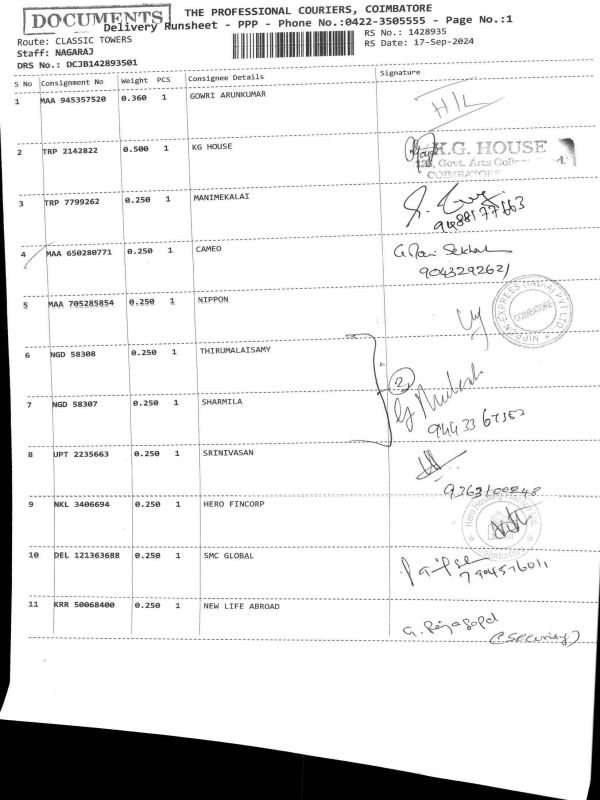 DOCUMENTS
THE PROFESSIONAL COURIERS, COIMBATORE
Delivery Runsheet - PPP - Phone No.:0422-3505555 - Page No.:1
Route: CLASSIC TOWERS
RS No.: 1428935
Staff: NAGARAJ
RS Date: 17-Sep-2024
DRS No.: DCJB142893501
S No Consignment No Weight PCS Consignee Details Signature
1 MAA 945357520 0.360 1 GOWRI ARUNKUMAR H/L
2 TRP 2142822 0.500 1 KG HOUSE
K.G. HOUSE
Govt. Arts College
COIMBATORE
3 TRP 7799262 0.250 1 MANIMEKALAI
9488177663
4 MAA 650280771 0.250 1 CAMEO
G. Ravi Sekhar
9043292621
5 MAA 705285854 0.250 1 NIPPON
NIPPON EXPRESS (INDIA) PVT LTD
COIMBATORE
6 NGD 58308 0.250 1 THIRUMALAISAMY
2
7 NGD 58307 0.250 1 SHARMILA
9443367353
8 UPT 2235663 0.250 1 SRINIVASAN
9363100248
9 NKL 3406694 0.250 1 HERO FINCORP
Hero Housing
10 DEL 121363688 0.250 1 SMC GLOBAL
11 KRR 50068400 0.250 1 NEW LIFE ABROAD
G. Rajagopal
(Security)